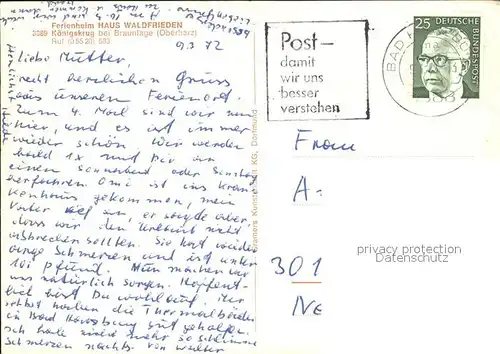 Ferienheim HAUS WALDFRIEDEN
3389 Königskrug bei Braunlage (Oberharz)
Ruf (0 55 20) 683
9.3.72
liebe Mutter,
recht herzlichen Gruss
aus unseren Ferienort.
Zum 4. Mal sind wir nun
hier, und es ist immer
wieder schön. Wir werden
bald 1x und Dir an
einen Sonnabend oder Sonntag
Omi ist ins Kran-
kenhaus gekommen, mein
Vater rief an, er sagte aber,
dass wir den Urlaub nicht
abbrechen sollten. Sie hat wieder
arge Schmerzen und ist unter
101 Pfund. Nun machen wir
uns natürlich Sorgen. Hoffent-
lich bist Du wohlauf. Mir
haben die Thermalbäder
in Bad Harzburg gut geholfen.
ich habe nicht mehr so schlimme
Schmerzen nachts.
Kramers Kunst KG, Dortmund
Post –
damit
wir uns
besser
verstehen
BAD
25
DEUTSCHE
BUNDESPOST
Frau
A.
301
privacy protection
Datenschutz